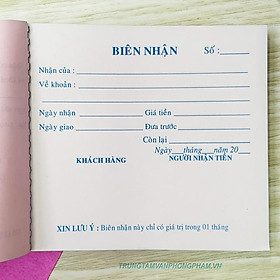 BIÊN NHẬN Số :
Nhận của :
Về khoản :
Ngày nhận Giá tiền
Ngày giao Đưa trước
Còn lại
Ngày tháng năm 20
KHÁCH HÀNG NGƯỜI NHẬN TIỀN
XIN LƯU Ý : Biên nhận này chỉ có giá trị trong 01 tháng
TRUNGTAMVANPHONGPHAM.VN